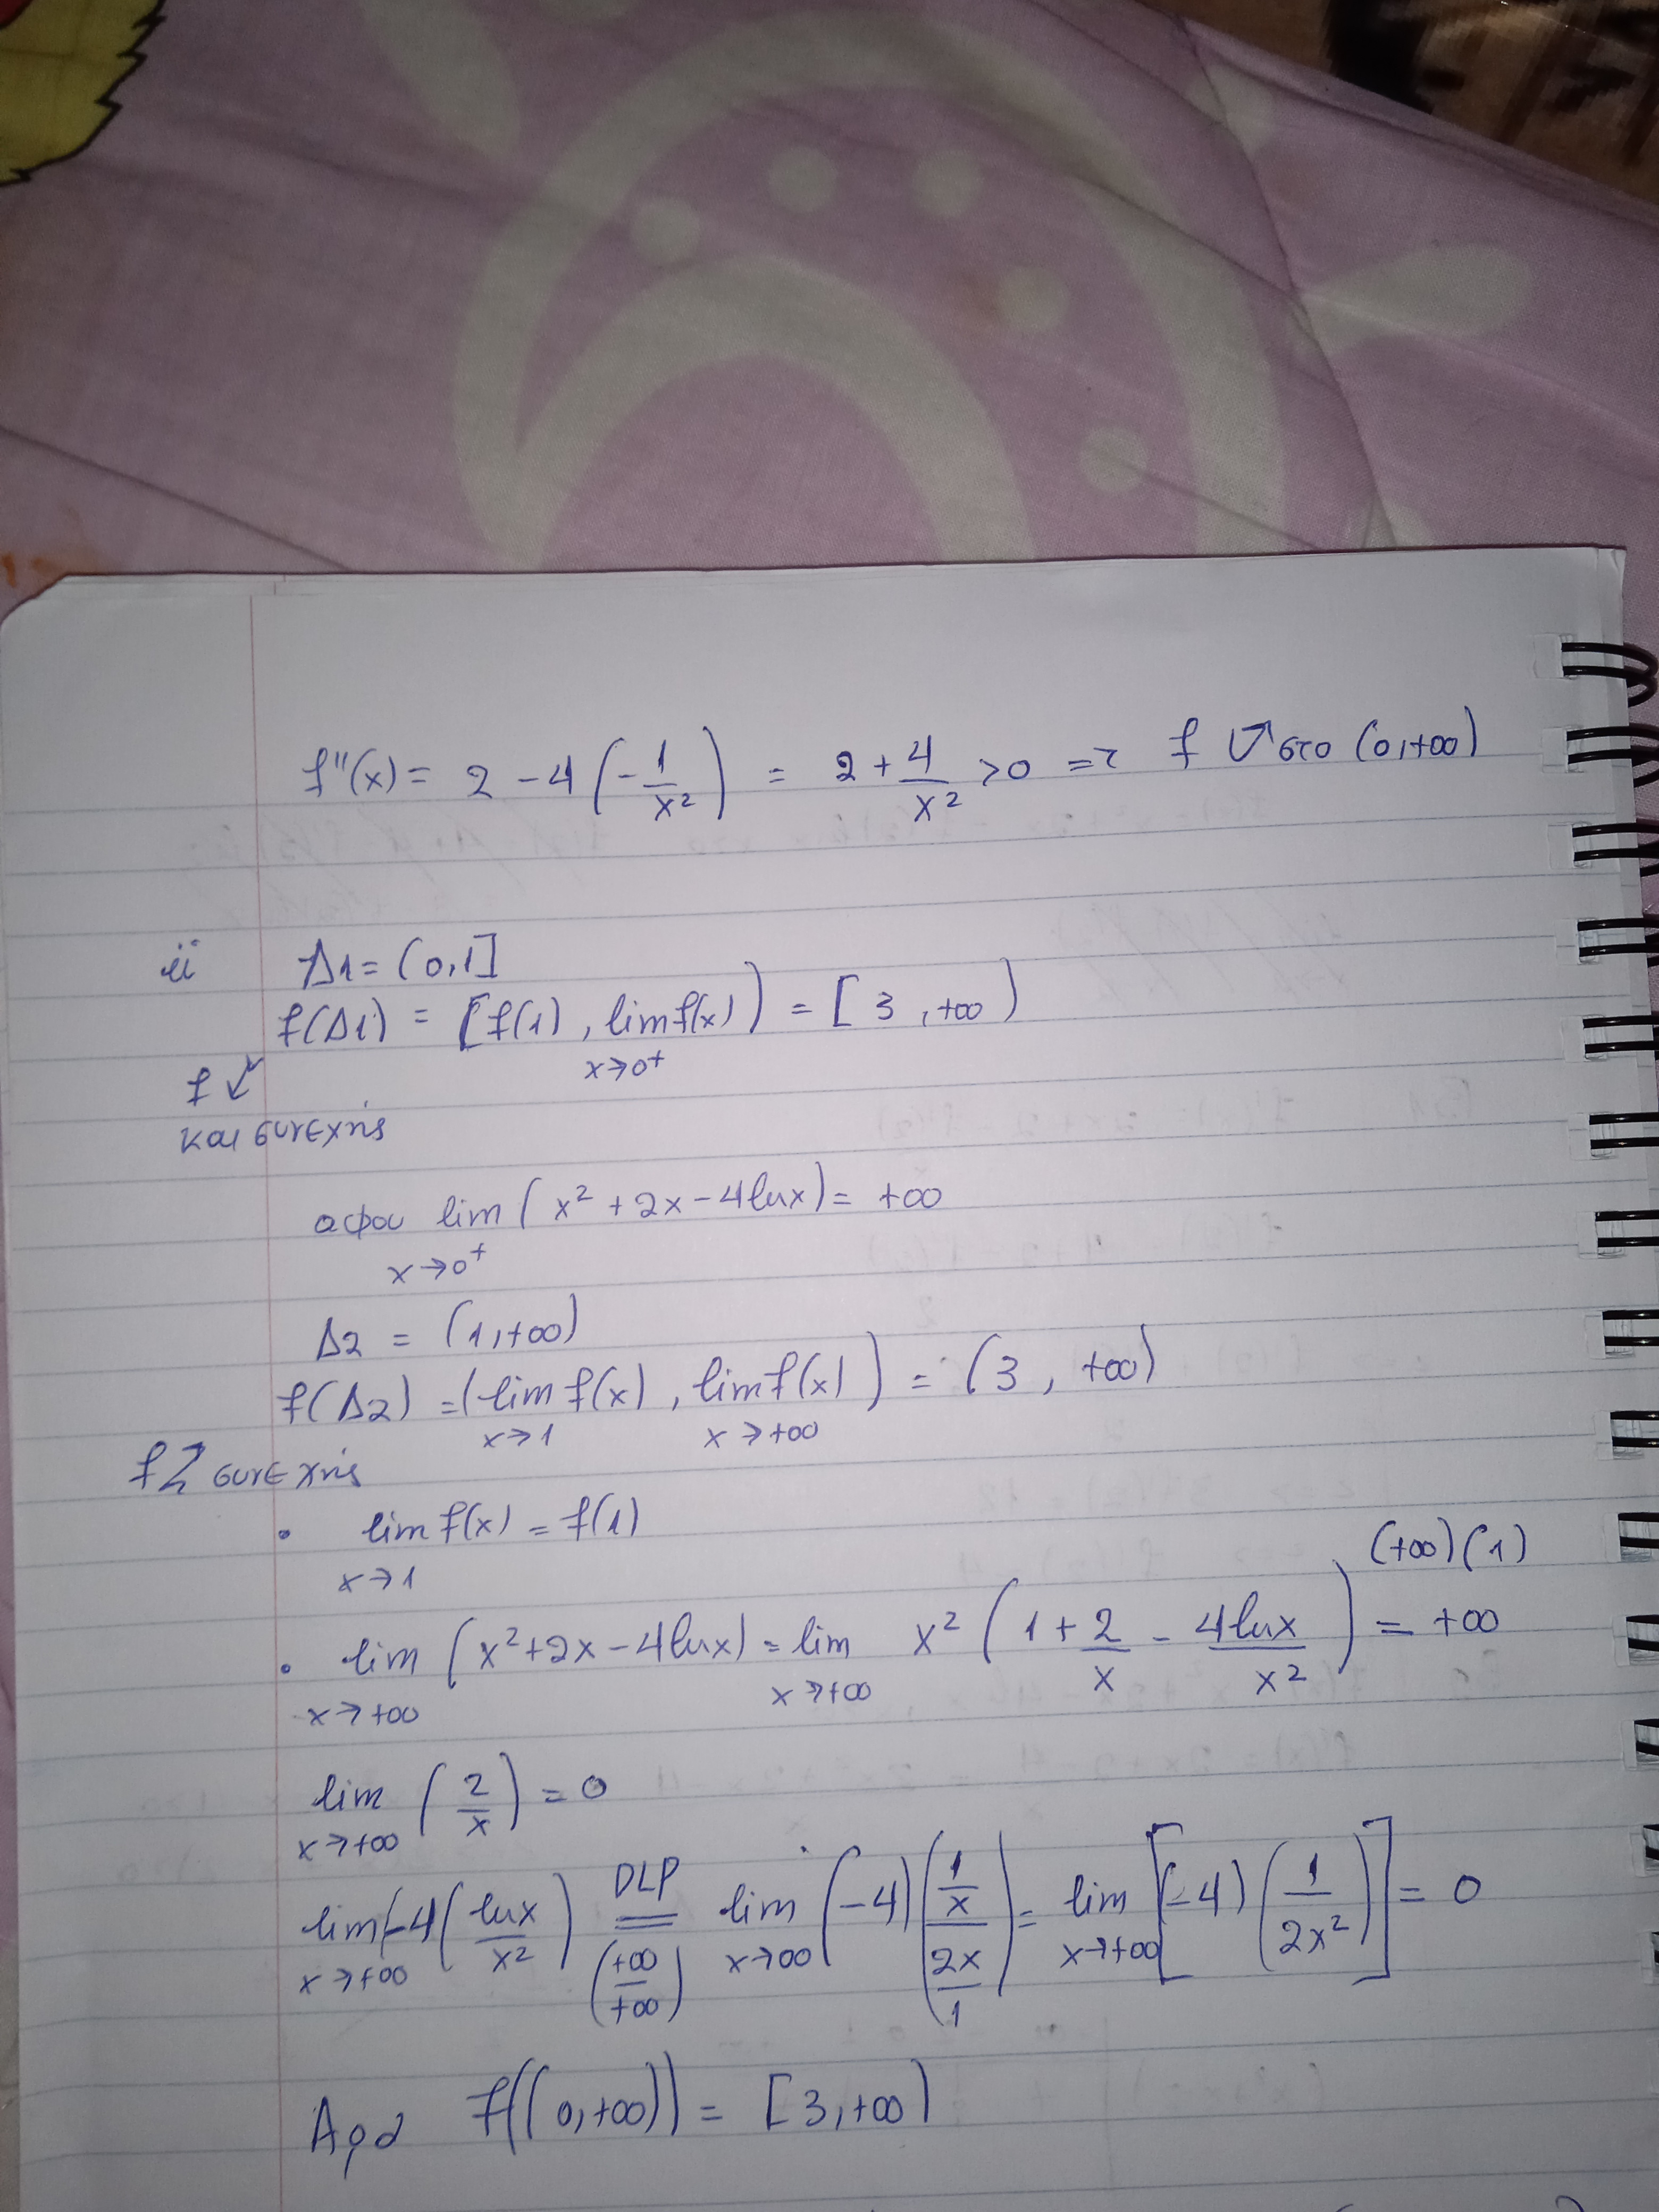 f''(x) = 2 - 4(-1/x²) = 2 + 4/x² > 0 => f στο (0,+∞)
ii Δ1 = (0,1]
f(Δ1) = [f(1), lim f(x)) = [3, +∞)
x→0⁺
f ↙
και συνεχής
αφου lim (x² + 2x - 4lnx) = +∞
x→0⁺
Δ2 = (1,+∞)
f(Δ2) = (lim f(x), lim f(x)) = (3, +∞)
x→1 x→+∞
f συνεχής
• lim f(x) = f(1)
x→1
(+∞)(1)
• lim (x²+2x-4lnx) = lim x² (1 + 2/x - 4lnx/x²) = +∞
x→+∞ x→+∞
lim (2/x) = 0
x→+∞
lim(-4(lnx/x²) DLP= (+∞/+∞) lim (-4)((1/x)/(2x/1)) = lim [(-4)(1/2x²)] = 0
x→+∞ x→∞ x→+∞
Αρα f((0,+∞)) = [3,+∞)